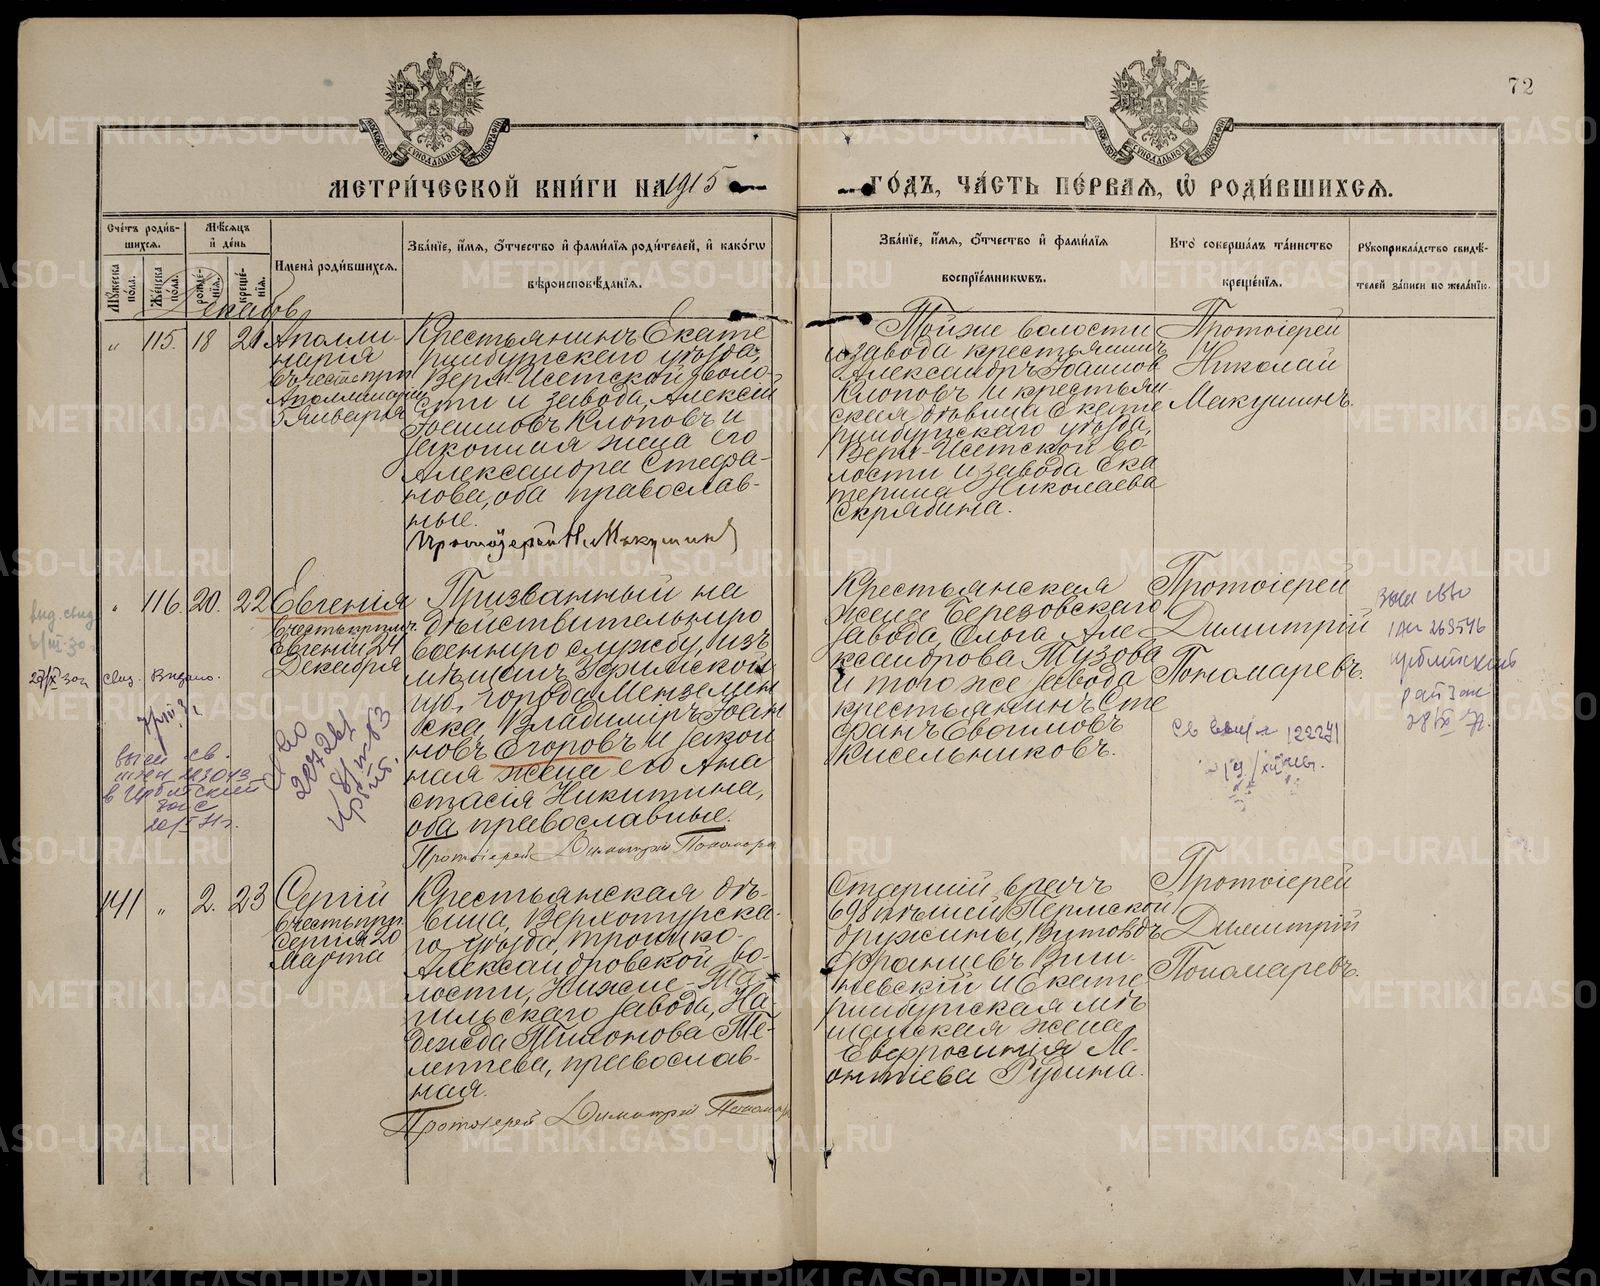 72
МОСКОВСКОЙ СѴНОДАЛЬНОЙ ТИПОГРАФІИ
МОСКОВСКОЙ СѴНОДАЛЬНОЙ ТИПОГРАФІИ
МЕТРИ́ЧЕСКОЙ КНИ́ГИ НА 1915
ГО́ДЪ, ЧА́СТЬ ПЕ́РВАѦ, Ѡ҆ РОДИ́ВШИХСѦ.
Сче́тъ роди́в-
шихсѧ.
Мꙋжеска по́ла.
Же́нска по́ла.
Мѣ́сѧцъ
и҆ де́нь
рожде́-
нїѧ.
креще́-
нїѧ.
И҆мена̀ роди́вшихсѧ.
Зва́нїе, и҆́мѧ, ѻ҆́тчество и҆ фами́лїѧ роди́телей, и҆ како́гѡ
вѣроисповѣ́данїѧ.
Зва́нїе, и҆́мѧ, ѻ҆́тчество и҆ фами́лїѧ
воспрїе́мникѡвъ.
Кто̀ соверша́лъ та́инство
креще́нїѧ.
Рꙋкоприкла́дство свидѣ́-
телей за́писи по жела́нїю.
Декабрь
„ 115. 18 21
Аполли-
нарія
въ честь прп
Аполлинаріи
5 Января
Крестьянинъ Екате
ринбургскаго уѣзда,
Верх-Исетской воло-
сти и завода, Алексій
Іоанновъ Клоповъ и
законная жена его
Александра Стефа-
нова, оба православ-
ные.
Протоіерей Н. Макушинъ
Той же волости
и завода крестьянинъ
Александръ Іоанновъ
Клоповъ и крестьян-
ская дѣвица Екате
ринбургскаго уѣзда,
Верх-Исетской во-
лости и завода Ека
терина Николаева
Скрябина.
Протоіерей
Николай
Макушинъ.
„ 116. 20. 22
Евгенія
въ честь прпмч.
Евгеніи 24
Декабря
Призванный на
дѣйствительную
военную службу, изъ
мѣщанъ Уфимской
губ., города Мензелин
ска, Владиміръ Іоан
новъ Егоровъ и закон
ная жена его Ана
стасія Никитина,
оба православные.
Протоіерей Димитрій Пономаре
Крестьянская
жена Березовскаго
завода, Ольга Але
ксандрова Тузова
и того же завода
крестьянинъ Сте
фанъ Евдимовъ
Кисельниковъ.
Протоіерей
Димитрій
Пономаревъ.
св. Выдано.
141 „ 2. 23
Сергій
въ честь прп.
Сергія 20
Марта
Крестьянская дѣ-
вица, Верхотурска-
го уѣзда, Троицко-
Александровской во-
лости, Нижне-Та-
гильскаго завода, На-
дежда Тихонова Те-
лептева, православ-
ная.
Протоіерей Димитрій Пономар
Старшій врачъ
698 пѣшей Пермской
дружины, Витовдъ
Францевъ Виш-
невскій и Екате
ринбургская мѣ
щанская жена
Евфросинія Ле-
онтіева Рубина.
Протоіерей
Димитрій
Пономаревъ.
METRIKI.GASO-URAL.RU